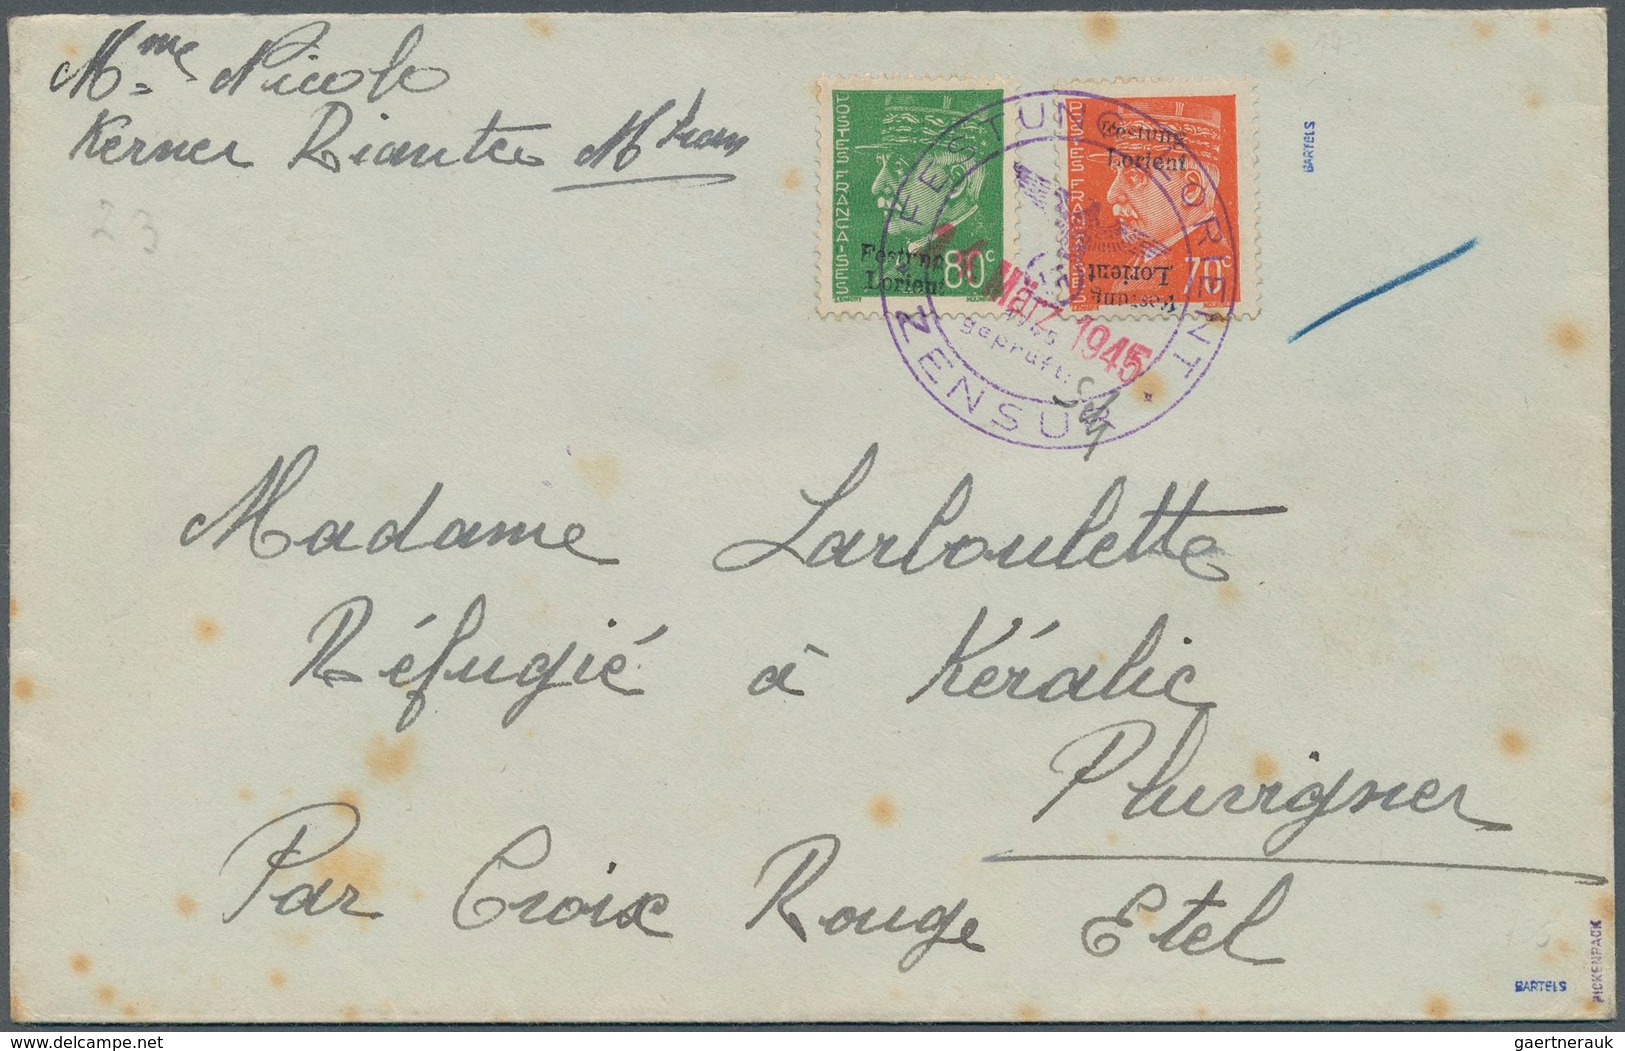 Mme Nicolo
Kerner Riantec Mbran
23
POSTES FRANÇAISES
Festung
Lorient
80c
POSTES FRANÇAISES
Festung
Lorient
Festung
Lorient
70c
FESTUNG LORIENT
ZENSUR
geprüft:
März 1945
BARTELS
Madame Larboulette
Réfugié à Kéralic
Pluvigner
Par Croix Rouge Etel
BARTELS
PICKENPACK
www.delcampe.net
gaertnerauk